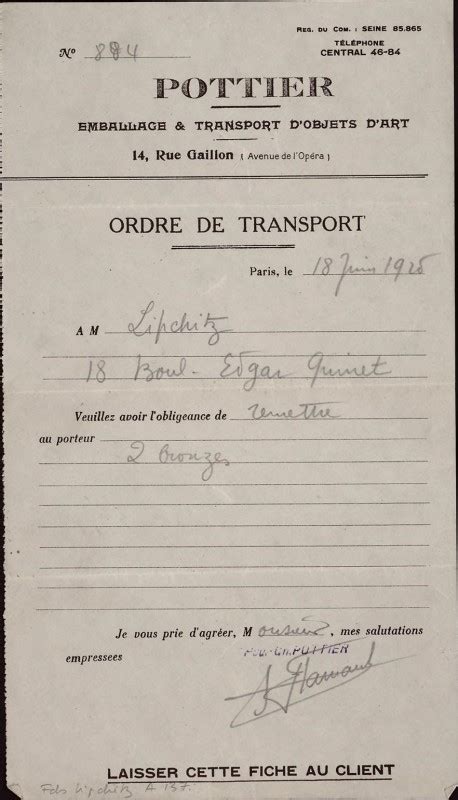 REG. DU COM. : SEINE 85.865
TÉLÉPHONE
CENTRAL 46-84
No 884
POTTIER
EMBALLAGE & TRANSPORT D'OBJETS D'ART
14, Rue Gaillon ( Avenue de l'Opéra )
ORDRE DE TRANSPORT
Paris, le 18 Juin 1925
A M Lipchitz
18 Boul. Edgar Quinet
Veuillez avoir l'obligeance de remettre
au porteur
2 bronzes
Je vous prie d'agréer, Monsieur, mes salutations
empressees
Pour Ch. POTTIER
LAISSER CETTE FICHE AU CLIENT
Fds Lipchitz A 157.